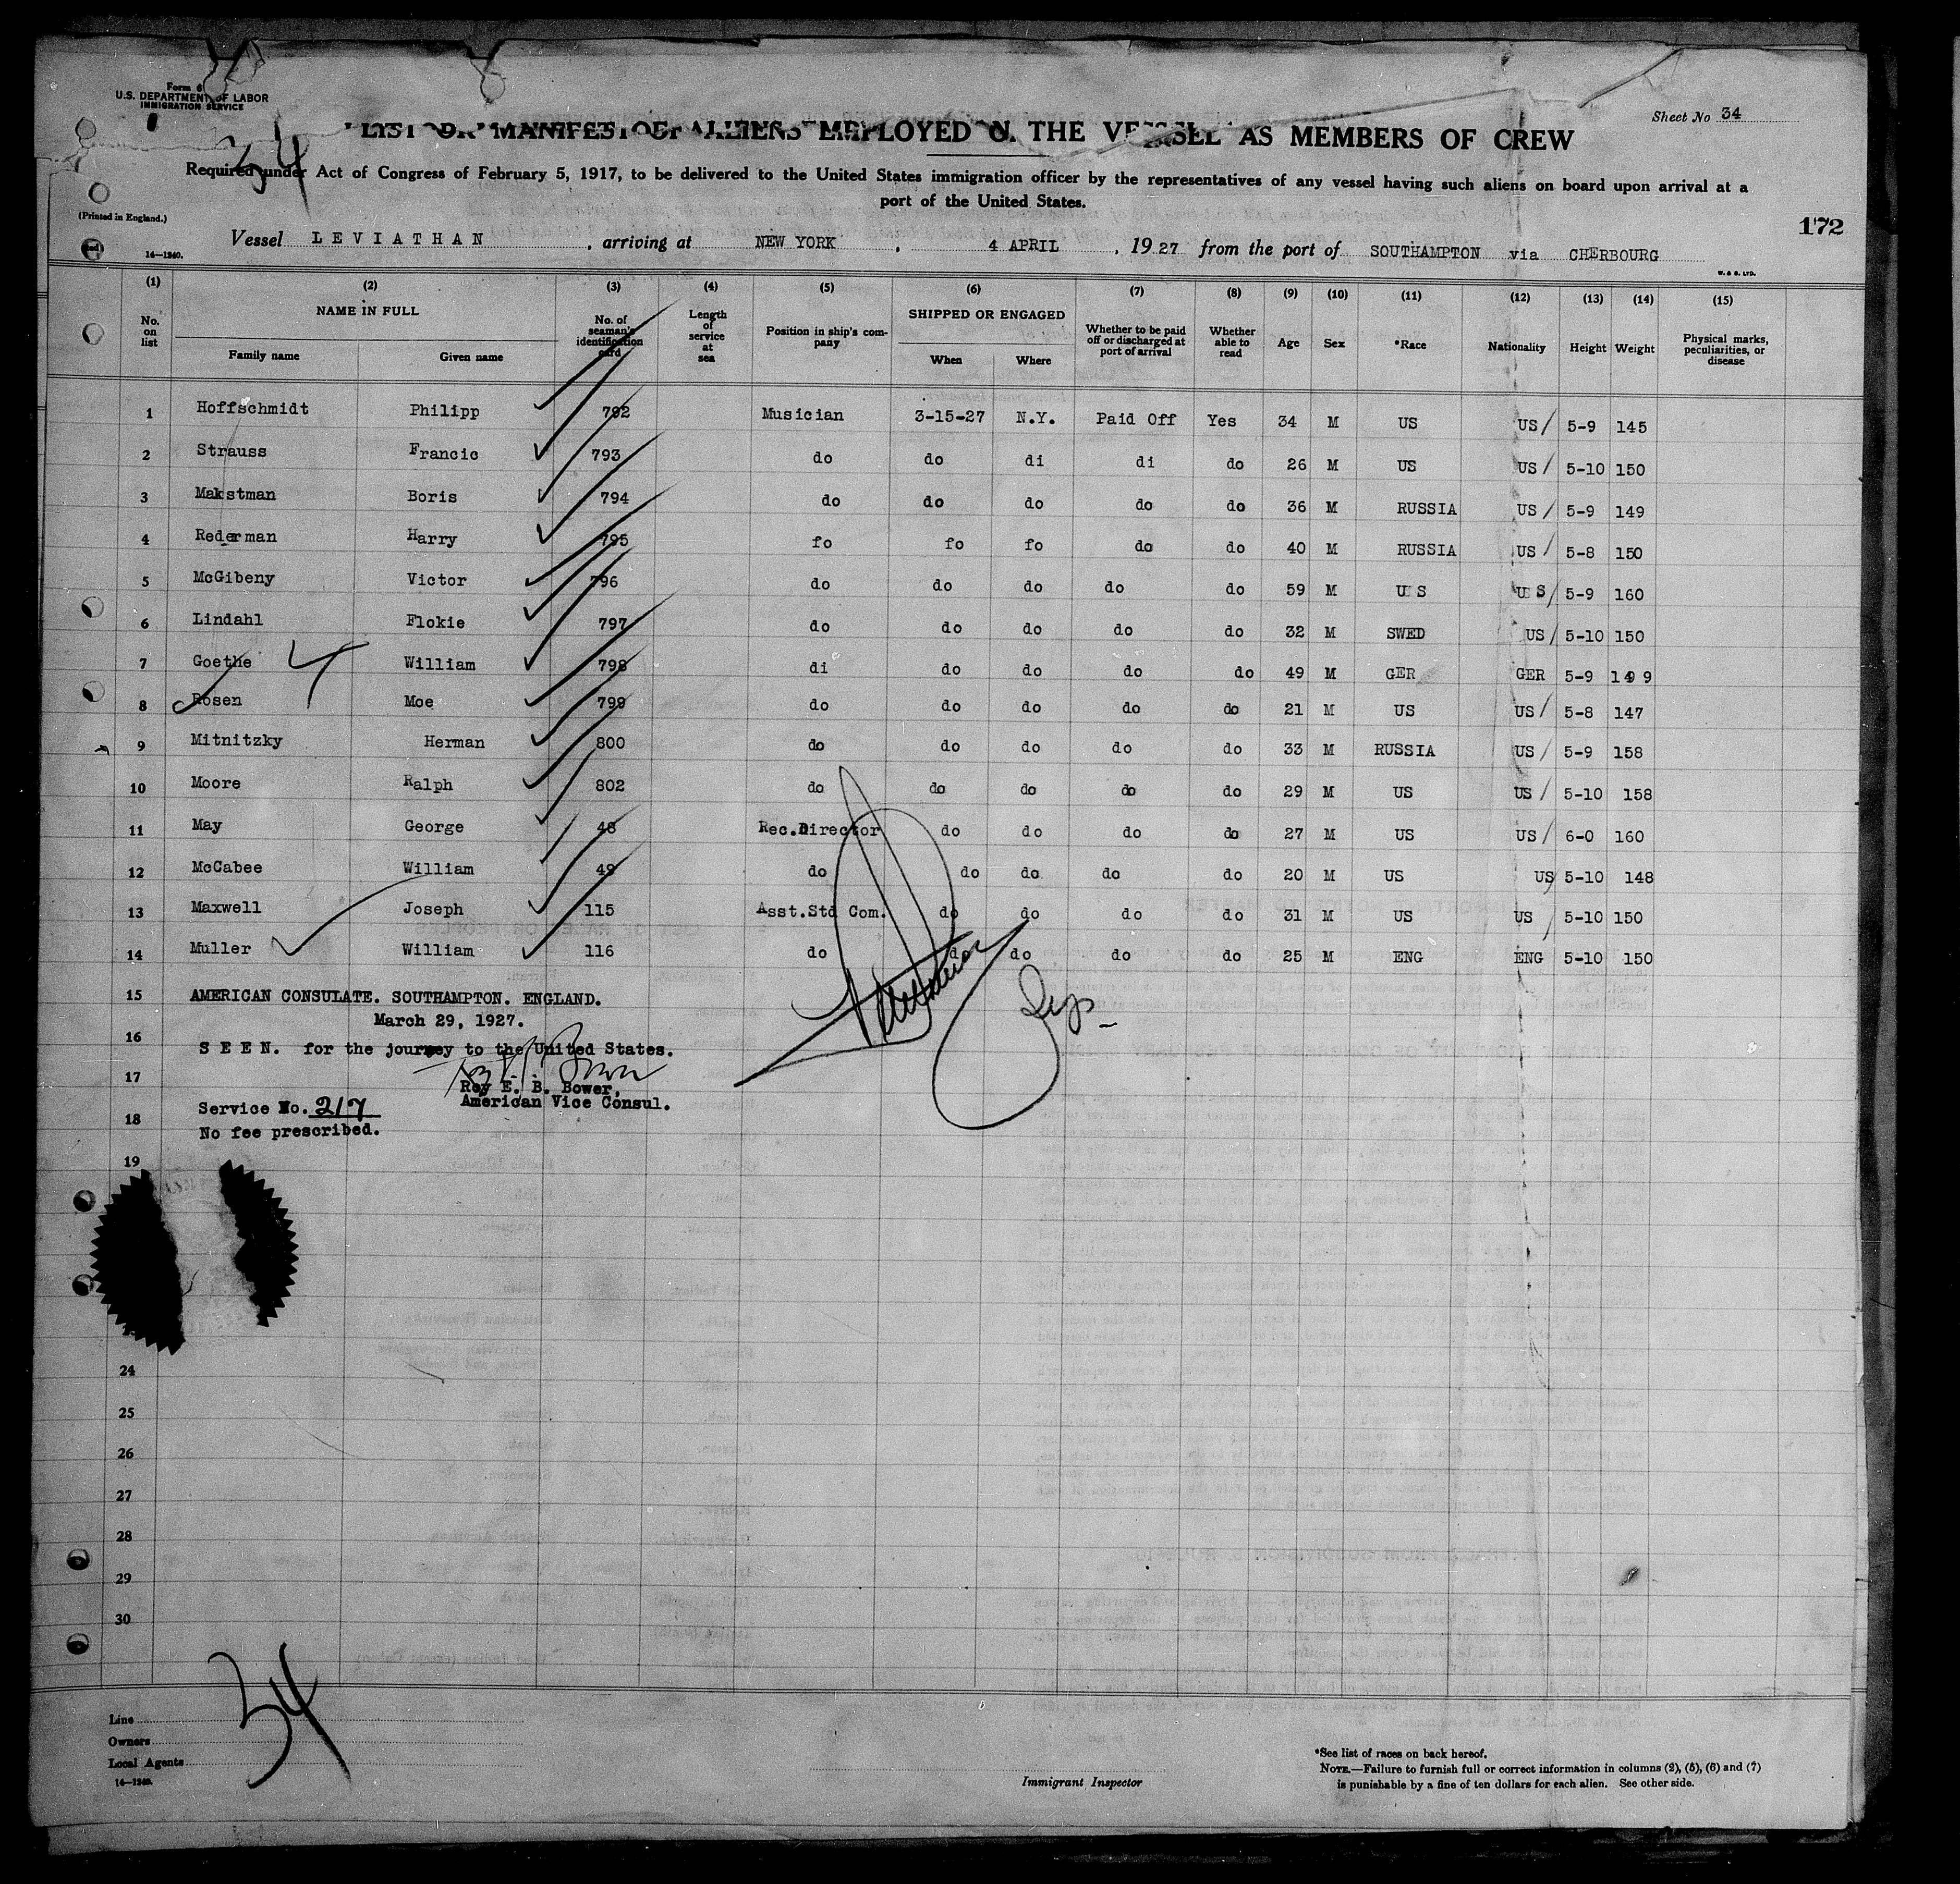 Form 6
U.S. DEPARTMENT OF LABOR
IMMIGRATION SERVICE
Sheet No 34
LIST OR MANIFEST OF ALIENS EMPLOYED ON THE VESSEL AS MEMBERS OF CREW
34
Required under Act of Congress of February 5, 1917, to be delivered to the United States immigration officer by the representatives of any vessel having such aliens on board upon arrival at a
port of the United States.
(Printed in England.)
172
Vessel LEVIATHAN, arriving at NEW YORK, 4 APRIL, 1927 from the port of SOUTHAMPTON via CHERBOURG
14—1240.
W. & S. LTD.
(1) (2) (3) (4) (5) (6) (7) (8) (9) (10) (11) (12) (13) (14) (15)
No. on list NAME IN FULL Family name Given name No. of seaman's identification card Length of service at sea Position in ship's company SHIPPED OR ENGAGED When Where Whether to be paid off or discharged at port of arrival Whether able to read Age Sex *Race Nationality Height Weight Physical marks, peculiarities, or disease
1 Hoffschmidt Philipp 792 Musician 3-15-27 N.Y. Paid Off Yes 34 M US US/ 5-9 145
2 Strauss Francic 793 do do di di do 26 M US US/ 5-10 150
3 Makstman Boris 794 do do do do do 36 M RUSSIA US/ 5-9 149
4 Rederman Harry 795 fo fo fo do do 40 M RUSSIA US/ 5-8 150
5 McGibeny Victor 796 do do do do do 59 M U S U S/ 5-9 160
6 Lindahl Flokie 797 do do do do do 32 M SWED US/ 5-10 150
7 Goethe William 798 di do do do do 49 M GER GER 5-9 149
8 Rosen Moe 799 do do do do do 21 M US US/ 5-8 147
9 Mitnitzky Herman 800 do do do do do 33 M RUSSIA US/ 5-9 158
10 Moore Ralph 802 do do do do do 29 M US US/ 5-10 158
11 May George 48 Rec.Director do do do do 27 M US US/ 6-0 160
12 McCabee William 49 do do do do do 20 M US US/ 5-10 148
13 Maxwell Joseph 115 Asst.Std Com. do do do do 31 M US US/ 5-10 150
14 Muller William 116 do do do do do 25 M ENG ENG 5-10 150
15 AMERICAN CONSULATE. SOUTHAMPTON. ENGLAND.
March 29, 1927.
16
SEEN. for the journey to the United States.
17
Roy E. B. Bower,
American Vice Consul.
Service No. 217
18
No fee prescribed.
19
24
25
26
27
28
29
30
34
Line
Owners
Local Agents
14—1240.
Immigrant Inspector
*See list of races on back hereof.
NOTE.—Failure to furnish full or correct information in columns (2), (5), (6) and (7)
is punishable by a fine of ten dollars for each alien. See other side.